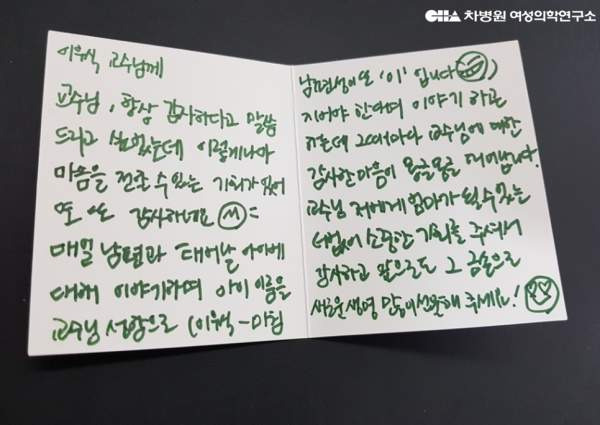 CHA 차병원 여성의학연구소
이우식 교수님께
교수님, 항상 감사하다고 말씀
드리고 싶었는데 이렇게나마
마음을 전할 수 있는 기회가 있어
또 또 감사하네요
매일 남편과 태어날 아이에
대해 이야기하며 아이 이름을
교수님 성함으로 (이우식-마침
남편성이 또 '이' 입니다)
지어야 한다며 이야기 하곤
하는데 그때마다 교수님에 대한
감사한 마음이 몽글몽글 피어납니다.
교수님 저에게 엄마가 될 수 있는
더없이 소중한 기회를 주셔서
감사하고 앞으로도 그 금손으로
새로운 생명 많이 선물해 주세요!